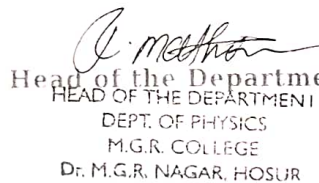 Head of the Departme
HEAD OF THE DEPARTMENT
DEPT. OF PHYSICS
M.G.R. COLLEGE
Dr. M.G.R. NAGAR, HOSUR